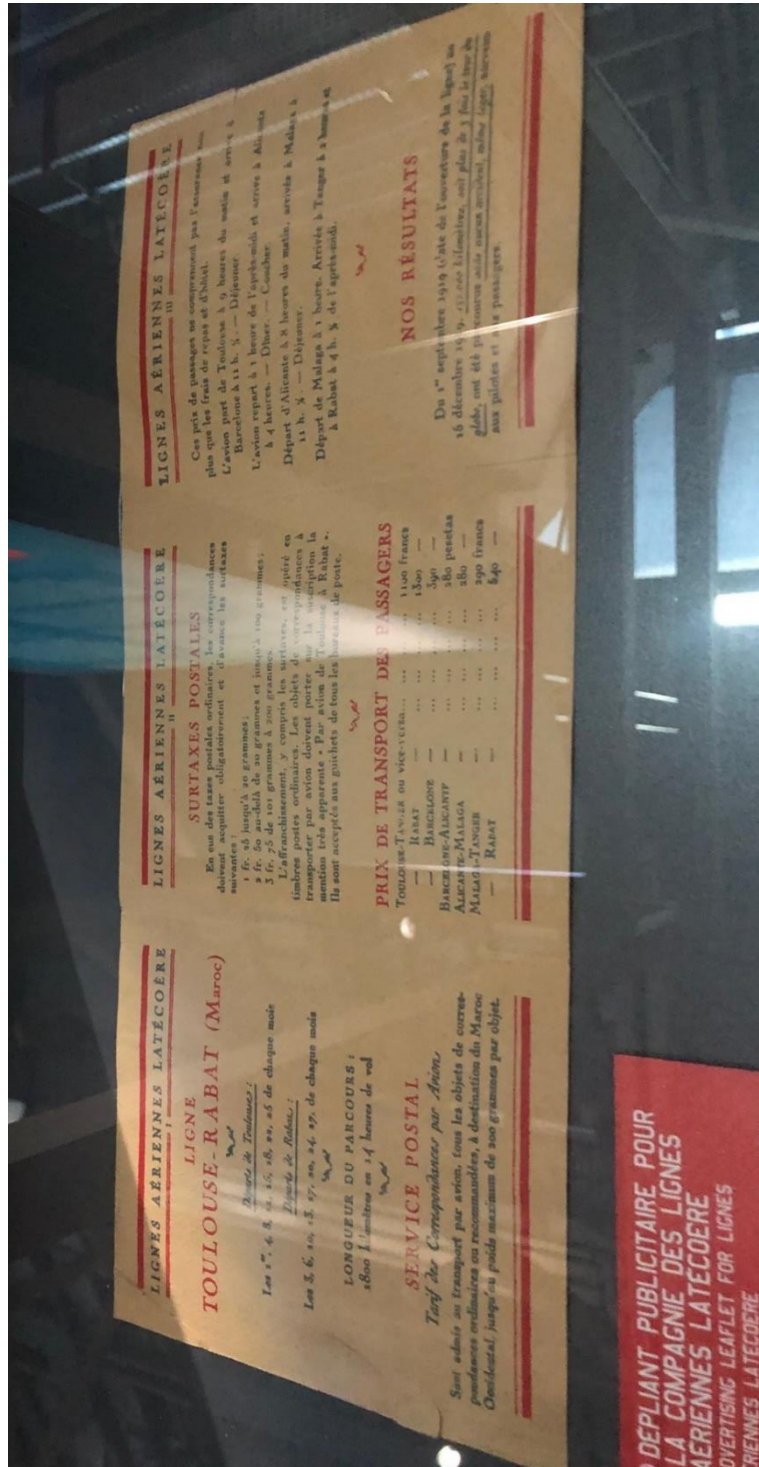 LIGNES AÉRIENNES LATÉCOÈRE
I
LIGNE
TOULOUSE-RABAT (Maroc)
Départs de Toulouse :
Les 1er, 4, 8, 12, 15, 18, 22, 25 de chaque mois
Départs de Rabat :
Les 3, 6, 10, 13, 17, 20, 24, 27, de chaque mois
LONGUEUR DU PARCOURS :
1800 kilomètres en 14 heures de vol
SERVICE POSTAL
Tarif des Correspondances par Avion
Sont admis au transport par avion, tous les objets de corres-
pondances ordinaires ou recommandées, à destination du Maroc
Occidental, jusqu'au poids maximum de 200 grammes par objet.
LIGNES AÉRIENNES LATÉCOÈRE
II
SURTAXES POSTALES
En sus des taxes postales ordinaires, les correspondances
doivent acquitter obligatoirement et d'avance les surtaxes
suivantes :
1 fr. 25 jusqu'à 20 grammes ;
2 fr. 50 au-delà de 20 grammes et jusqu'à 100 grammes ;
3 fr. 75 de 101 grammes à 200 grammes.
L'affranchissement, y compris les surtaxes, est opéré en
timbres postes ordinaires. Les objets de correspondances à
transporter par avion doivent porter sur la suscription la
mention très apparente « Par avion de Toulouse à Rabat ».
Ils sont acceptés aux guichets de tous les bureaux de poste.
PRIX DE TRANSPORT DES PASSAGERS
TOULOUSE-TANGER ou vice-versa... ... ... ... 1190 francs
— RABAT — ... ... ... ... 1500 —
— BARCELONE — ... ... ... ... 390 —
BARCELONE-ALICANTE — ... ... ... ... 280 pesetas
ALICANTE-MALAGA — ... ... ... ... 280 —
MALAGA-TANGER — ... ... ... ... 290 francs
— RABAT — ... ... ... ... 640 —
LIGNES AÉRIENNES LATÉCOÈRE
III
Ces prix de passages ne comprennent pas l'assurance non
plus que les frais de repas et d'hôtel.
L'avion part de Toulouse à 9 heures du matin et arrive à
Barcelone à 11 h. ½. — Déjeuner.
L'avion repart à 1 heure de l'après-midi et arrive à Alicante
à 4 heures. — Dîner. — Coucher.
Départ d'Alicante à 8 heures du matin, arrivée à Malaga à
11 h. ½. — Déjeuner.
Départ de Malaga à 1 heure. Arrivée à Tanger à 2 heures et
à Rabat à 4 h. ½ de l'après-midi.
NOS RÉSULTATS
Du 1er septembre 1919 (date de l'ouverture de la ligne) au
16 décembre 1919, kilomètres, soit plus de 3 fois le tour du
globe, ont été parcourus sans aucun accident, même léger, survenu
aux pilotes et aux passagers.
DÉPLIANT PUBLICITAIRE POUR
LA COMPAGNIE DES LIGNES
AÉRIENNES LATÉCOÈRE
ADVERTISING LEAFLET FOR LIGNES
AÉRIENNES LATÉCOÈRE